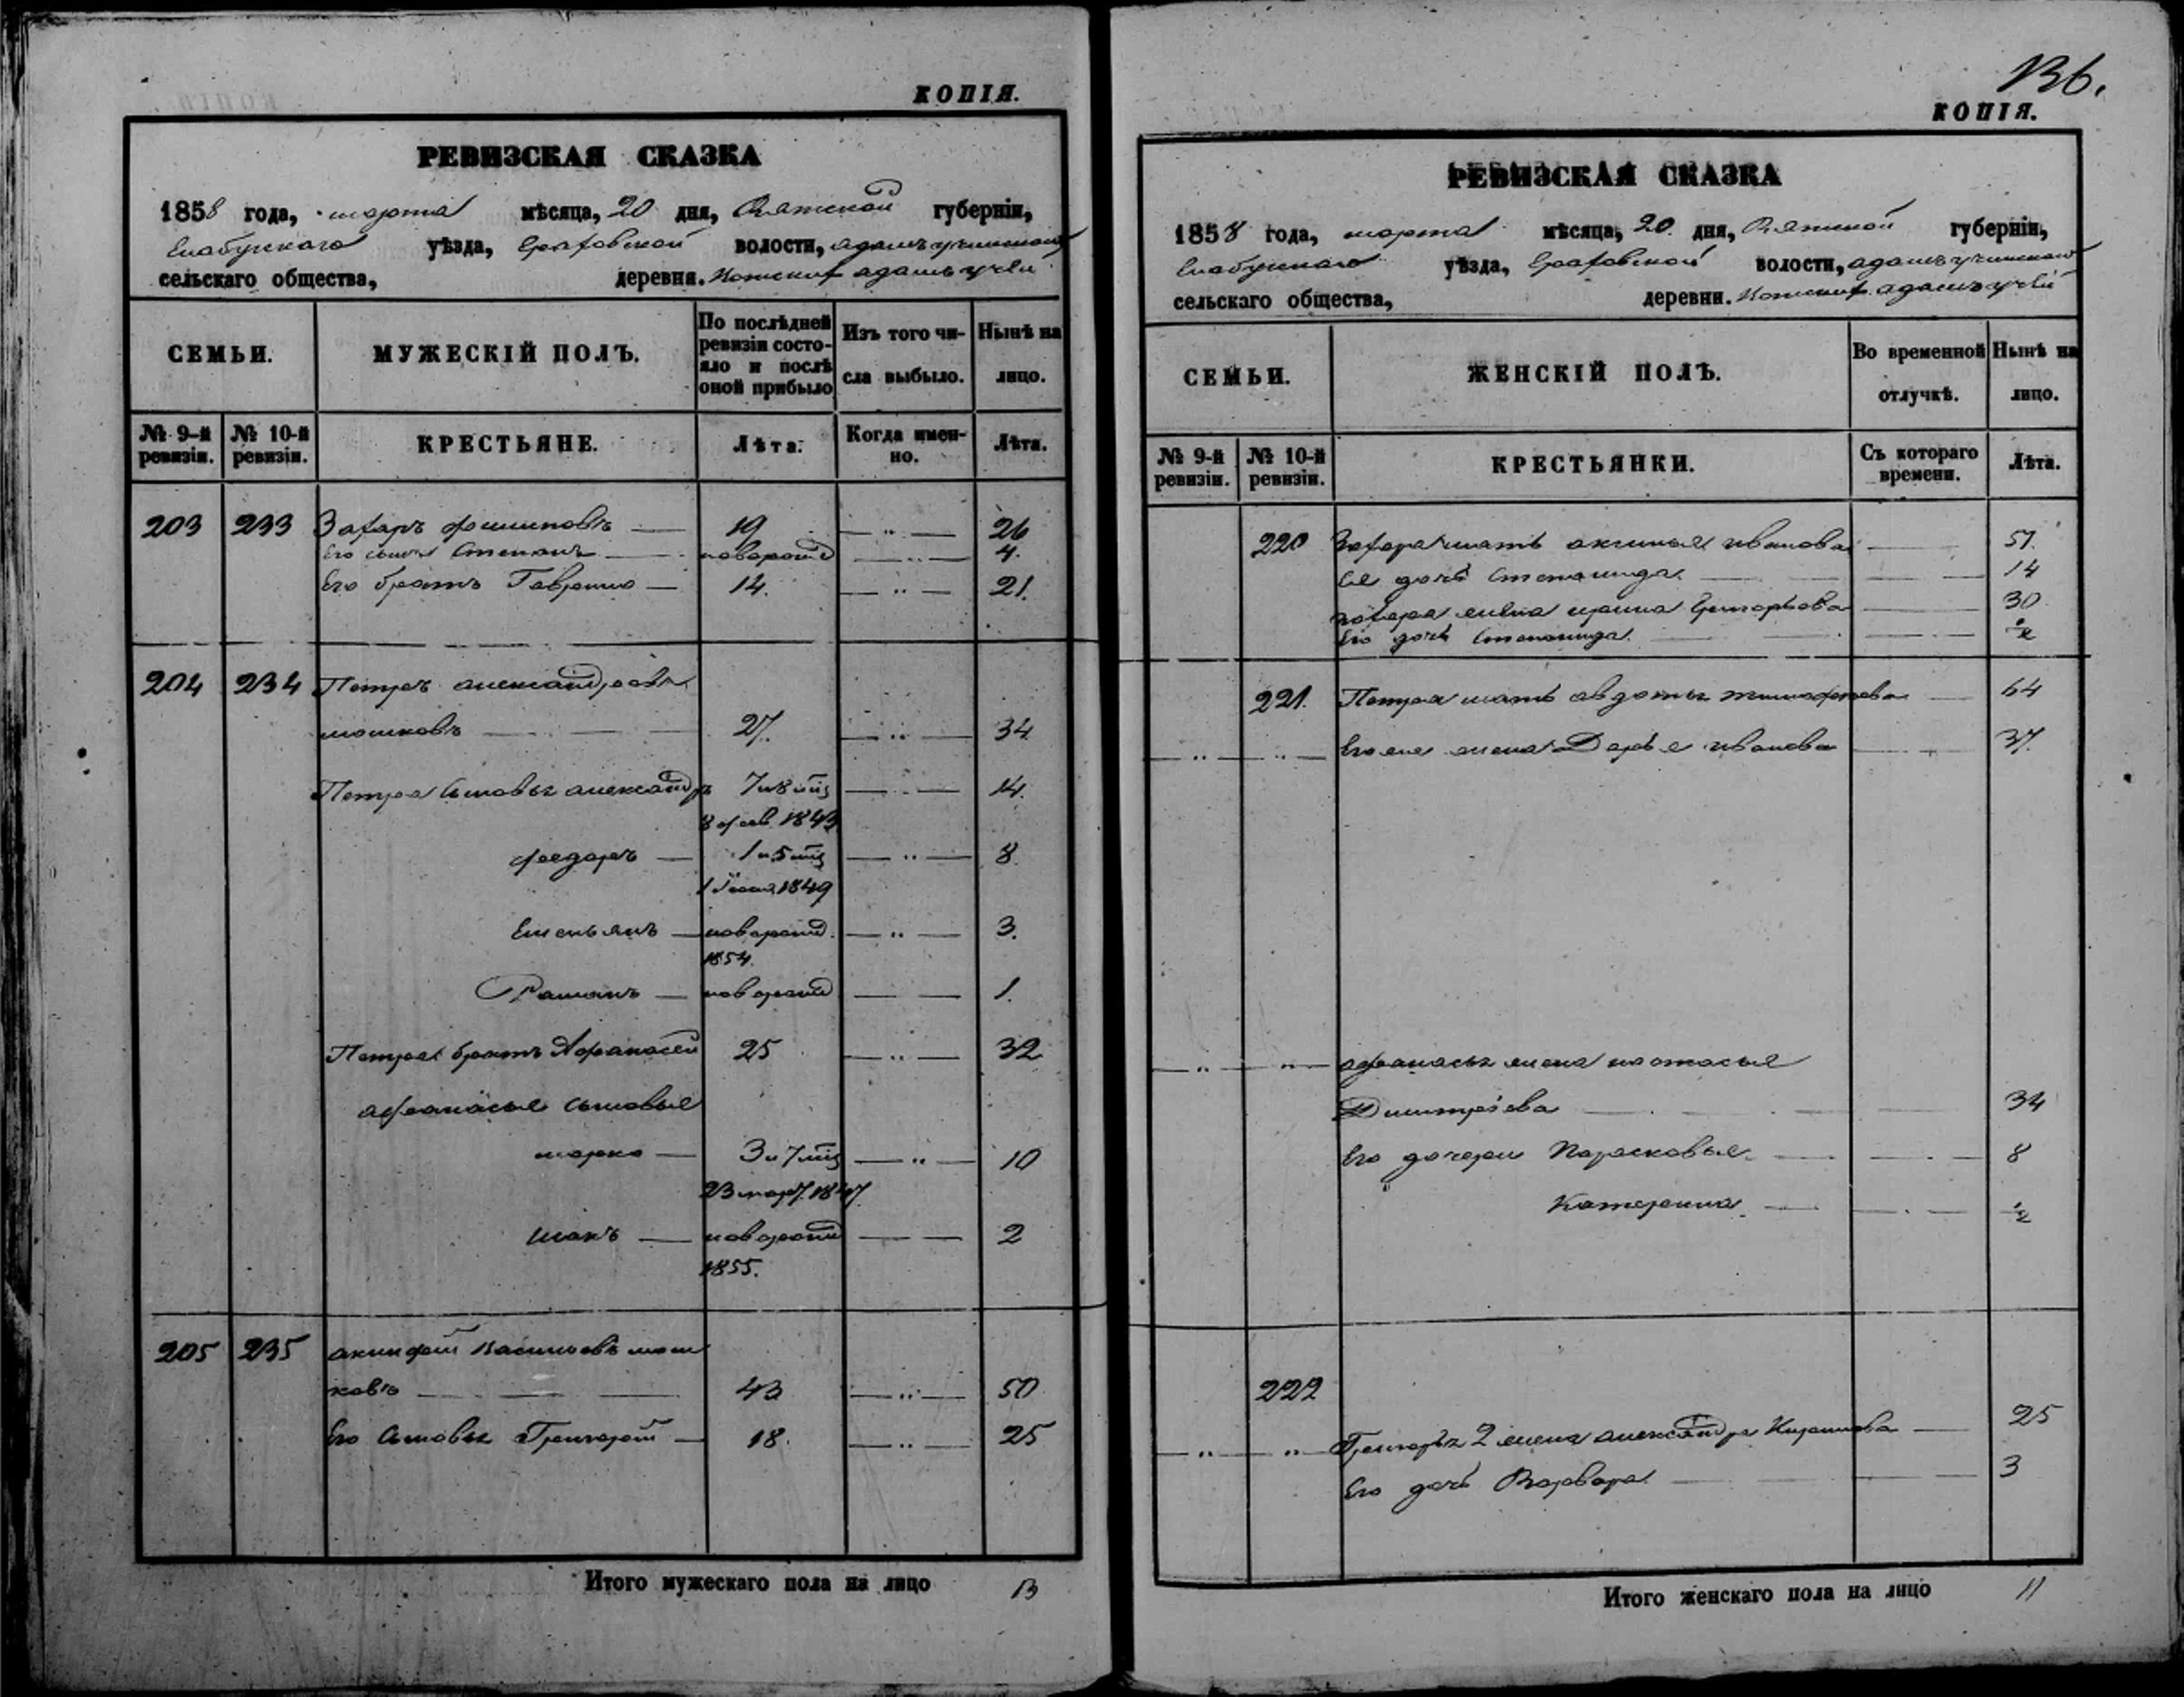 КОПІЯ.
РЕВИЗСКАЯ СКАЗКА
1858 года, марта мѣсяца, 20 дня, Вятской губерніи,
Елабужскаго уѣзда, Граховской волости,
сельскаго общества, деревня. адамъ учей
СЕМЬИ. МУЖЕСКІЙ ПОЛЪ. По послѣдней ревизіи состояло и послѣ оной прибыло Изъ того числа выбыло. Нынѣ на лицо.
№ 9-й ревизіи. № 10-й ревизіи. КРЕСТЬЯНЕ. Лѣта. Когда именно. Лѣта.
203 233 Захаръ — 19 — „ — 26
Его сынъ Степанъ — новорожд — „ — 4.
Его братъ Гаврило — 14. — „ — 21.
204 234 Петръ александровъ
мошковъ — 27. — „ — 34
Петра сыновья александръ 7 и 8 мѣс — 14.
8 фев. 1843
федоръ — 1 и 5 мѣс — „ — 8.
1849
Емельянъ — новорожд. — „ — 3.
1854.
Романъ — новорожд — — 1.
Петра братъ Афанасей 25 — „ — 32
афанасья сыновья
марко — 3 и 7 мѣс — „ — 10
23 март. 1847.
— новорожд — — 2
1855.
205 235 акинфей Васильевъ мош
ковъ — 43 — „ — 50
Его сыновья Григорей — 18. — „ — 25
Итого мужескаго пола на лицо 13
136.
КОПІЯ.
РЕВИЗСКАЯ СКАЗКА
1858 года, марта мѣсяца, 20 дня, Вятской губерніи,
Елабужскаго уѣзда, Граховской волости,
сельскаго общества, деревни. адамъ учей
СЕМЬИ. ЖЕНСКІЙ ПОЛЪ. Во временной отлучкѣ. Нынѣ на лицо.
№ 9-й ревизіи. № 10-й ревизіи. КРЕСТЬЯНКИ. Съ котораго времени. Лѣта.
220 Захара мать акилина иванова — 51.
Ея дочь Степанида — 14
захара жена ирина Григорьева — 30
Его дочь Степанида. — ½
221. Петра мать авдотья тимофеева — 64
— „ — „ — жена Дарья иванова — 37.
— „ — „ — афанасья жена настасья
Дмитріева — 34
Его дочери Парасковья — 8
Катерина — ½
222
— „ — „ — Григорья 2 жена александра Кирилова — 25
Его дочь Варвара — 3
Итого женскаго пола на лицо 11